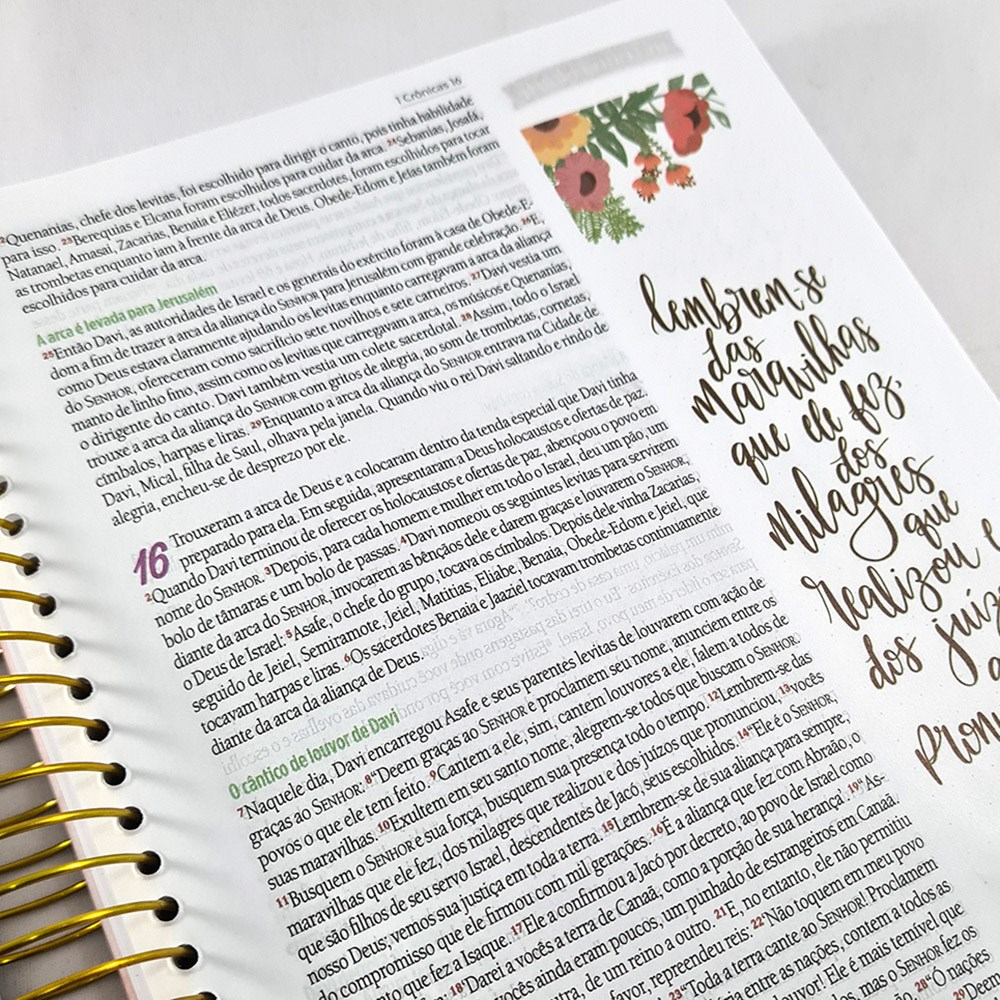 1 Crônicas 16
Quenanias, chefe dos levitas, foi escolhido para dirigir o canto, pois tinha habilidade
para isso. 23Berequias e Elcana foram escolhidos para cuidar da arca. 24Sebanias, Josafá,
Natanael, Amasai, Zacarias, Benaia e Eliézer, todos sacerdotes, foram escolhidos para tocar
as trombetas enquanto iam à frente da arca de Deus. Obede-Edom e Jeías também foram
escolhidos para cuidar da arca.
A arca é levada para Jerusalém
25Então Davi, as autoridades de Israel e os generais do exército foram à casa de Obede-E-
dom a fim de trazer a arca da aliança do SENHOR para Jerusalém com grande celebração. 26E,
como Deus estava claramente ajudando os levitas enquanto carregavam a arca da aliança
do SENHOR, ofereceram como sacrifício sete novilhos e sete carneiros. 27Davi vestia um
manto de linho fino, assim como os levitas que carregavam a arca, os músicos e Quenanias,
o dirigente do canto. Davi também vestia um colete sacerdotal. 28Assim, todo o Israel
trouxe a arca da aliança do SENHOR com gritos de alegria, ao som de trombetas, cornetas,
címbalos, harpas e liras. 29Enquanto a arca da aliança do SENHOR entrava na Cidade de
Davi, Mical, filha de Saul, olhava pela janela. Quando viu o rei Davi saltando e rindo de
alegria, encheu-se de desprezo por ele.
16 Trouxeram a arca de Deus e a colocaram dentro da tenda especial que Davi tinha
preparado para ela. Em seguida, apresentaram a Deus holocaustos e ofertas de paz.
2Quando Davi terminou de oferecer os holocaustos e ofertas de paz, abençoou o povo em
nome do SENHOR. 3Depois, para cada homem e mulher em todo o Israel, deu um pão, um
bolo de tâmaras e um bolo de passas. 4Davi nomeou os seguintes levitas para servirem
diante da arca do SENHOR, invocarem as bênçãos dele e darem graças e louvarem o SENHOR,
o Deus de Israel. 5Asafe, o chefe do grupo, tocava os címbalos. Depois dele vinha Zacarias,
seguido de Jeiel, Semiramote, Jeiel, Matitias, Eliabe, Benaia, Obede-Edom e Jeiel, que
tocavam harpas e liras. 6Os sacerdotes Benaia e Jaaziel tocavam trombetas continuamente
diante da arca da aliança de Deus.
O cântico de louvor de Davi
7Naquele dia, Davi encarregou Asafe e seus parentes levitas de louvarem com ação de
graças ao SENHOR: 8“Deem graças ao SENHOR e proclamem seu nome, anunciem entre os
povos o que ele tem feito. 9Cantem a ele, sim, cantem louvores a ele, falem a todos de
suas maravilhas. 10Exultem em seu santo nome, alegrem-se todos que buscam o SENHOR.
11Busquem o SENHOR e sua força, busquem sua presença todo o tempo. 12Lembrem-se das
maravilhas que ele fez, dos milagres que realizou e dos juízos que pronunciou, 13vocês
que são filhos de seu servo Israel, descendentes de Jacó, seus escolhidos. 14“Ele é o SENHOR,
nosso Deus; vemos sua justiça em toda a terra. 15Lembrem-se de sua aliança para sempre,
do compromisso que ele firmou com mil gerações. 16É a aliança que fez com Abraão, o
nto que fez a Isaque. 17Ele a confirmou a Jacó por decreto, ao povo de Israel como
18‘Darei a vocês a terra de Canaã, como a porção de sua herança’. 19“As-
vocês ainda eram poucos, um punhado de estrangeiros em Canaã.
outra, de um reino a outro. 21E, no entanto, ele não permitiu
favor, repreendeu reis: 22‘Não toquem em meu povo
23“Toda a terra cante ao SENHOR! Proclamem
entre as nações, contem a todos as
louvor! Ele é mais temível que
mas o SENHOR fez os
28“Ó nações
29Deem
lembrem-se
das
maravilhas
que ele fez,
dos
milagres
que
realizou
dos